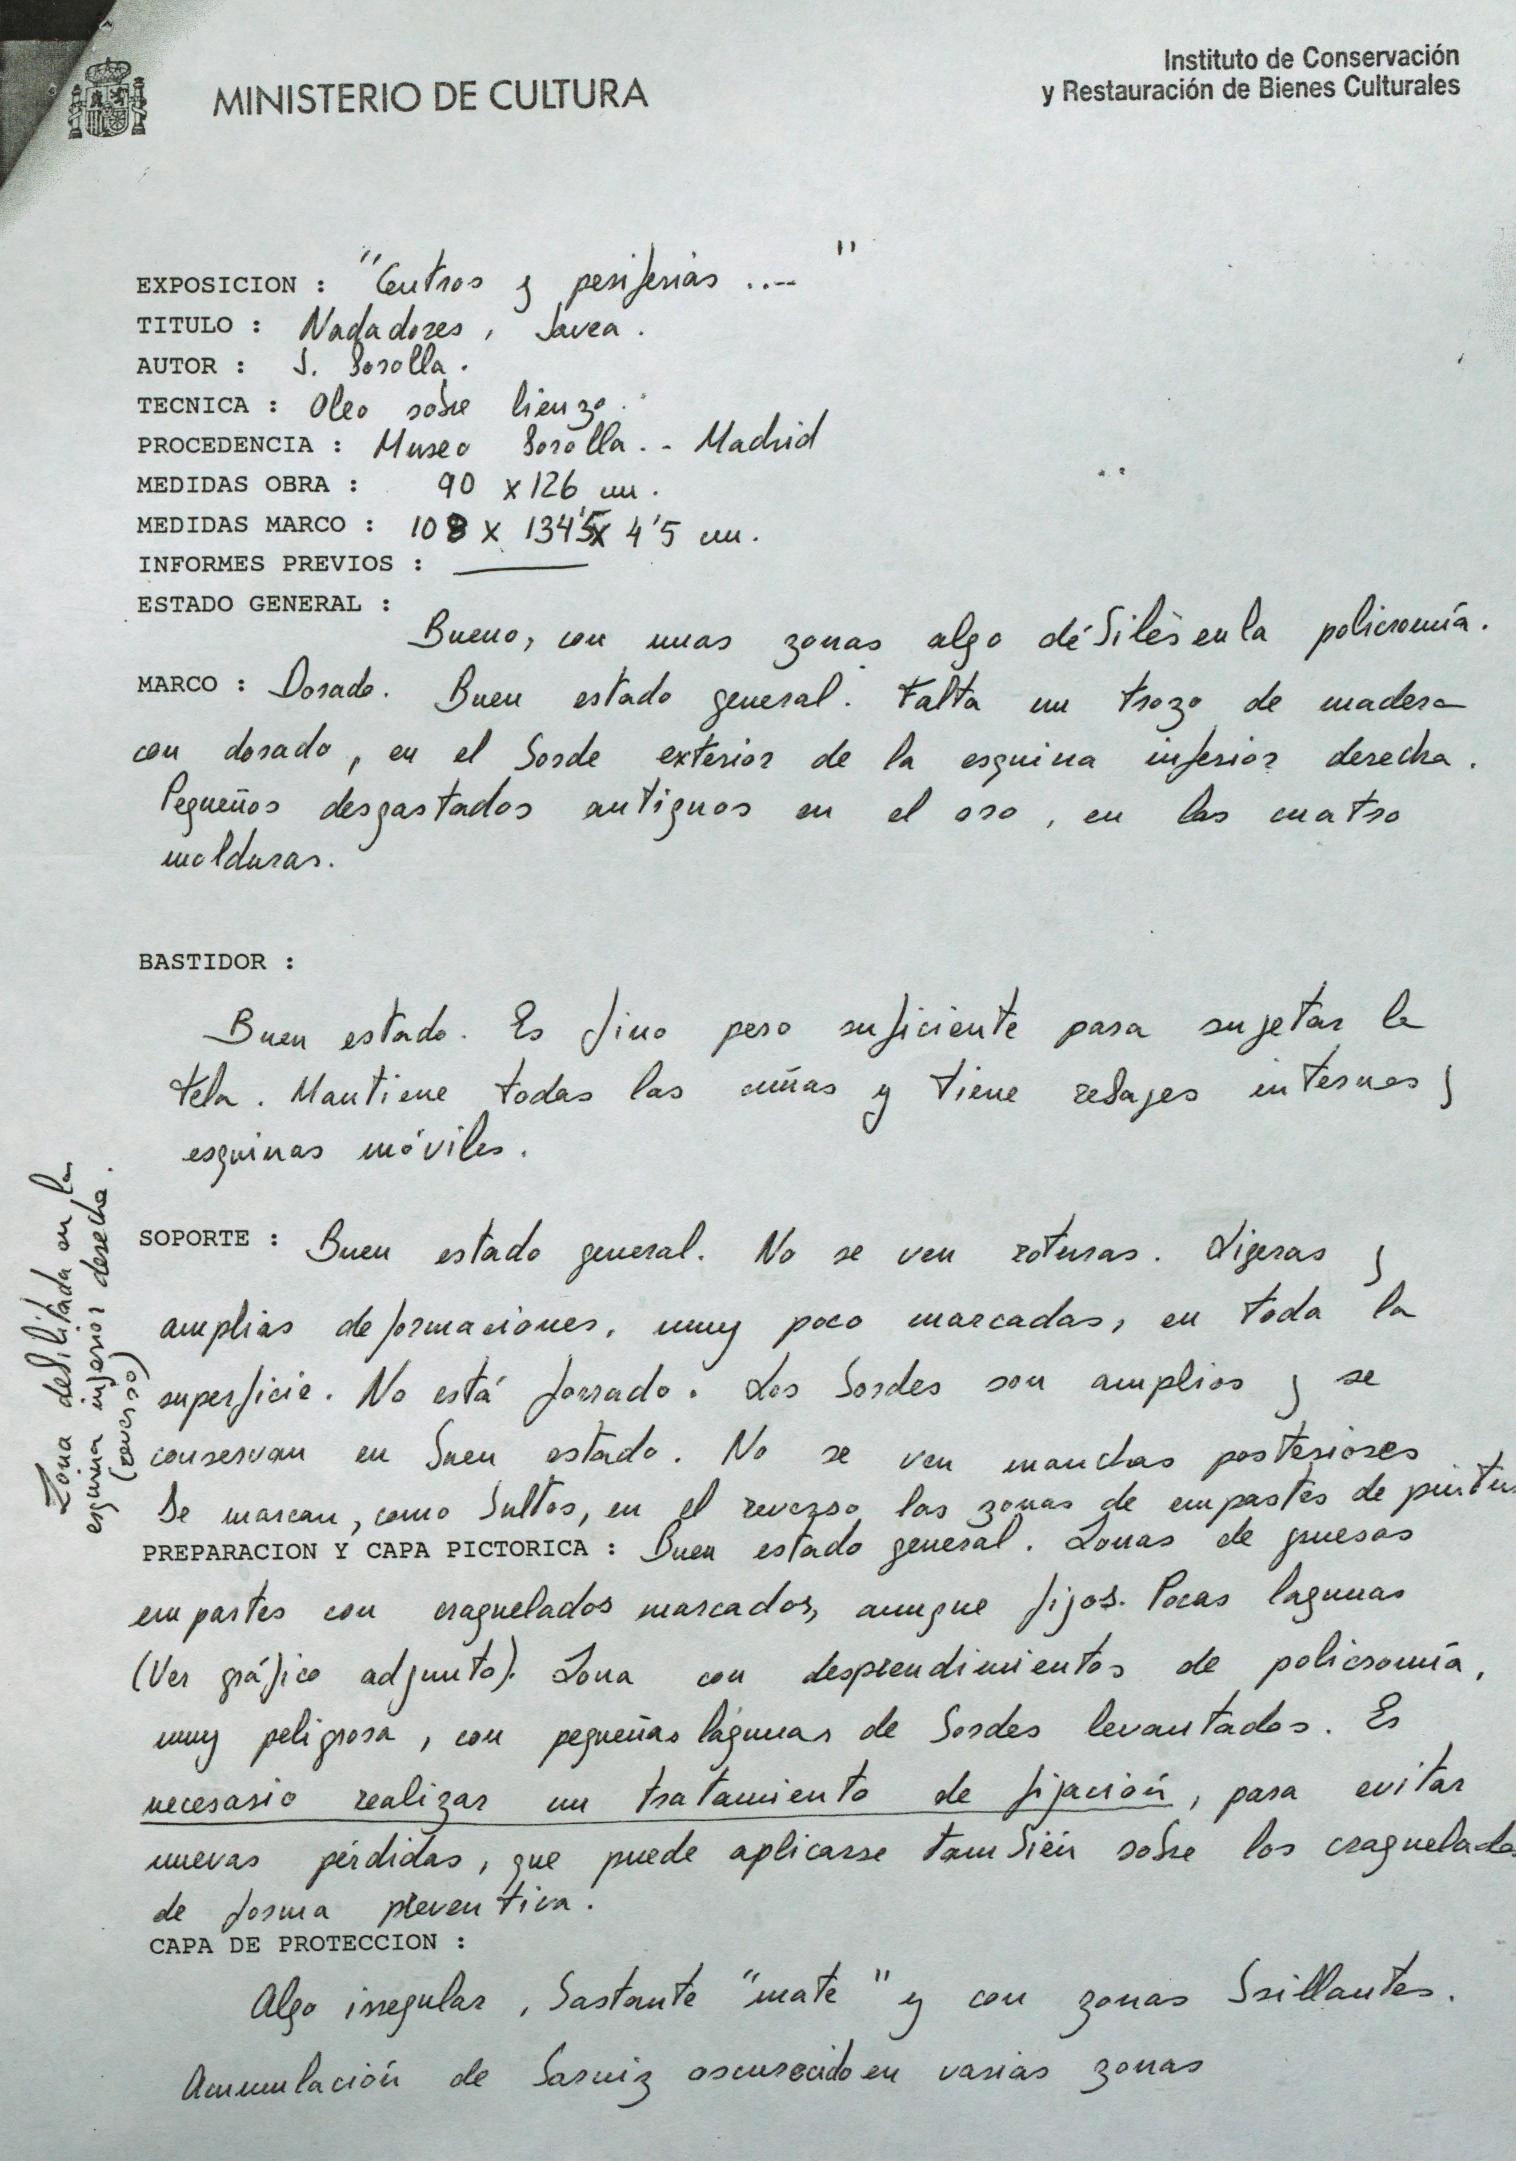 MINISTERIO DE CULTURA
Instituto de Conservación
y Restauración de Bienes Culturales
EXPOSICION : "Centros y periferias ...."
TITULO : Nadadores, Javea.
AUTOR : J. Sorolla.
TECNICA : Oleo sobre lienzo.
PROCEDENCIA : Museo Sorolla. - Madrid
MEDIDAS OBRA : 90 x 126 cm.
MEDIDAS MARCO : 108 x 134'5 x 4'5 cm.
INFORMES PREVIOS : ———
ESTADO GENERAL :
Bueno, con unas zonas algo débiles en la policromía.
MARCO : Dorado. Buen estado general. Falta un trozo de madera
con dorado, en el borde exterior de la esquina inferior derecha.
Pequeños desgastados antiguos en el oro, en las cuatro
molduras.
BASTIDOR :
Buen estado. Es fino pero suficiente para sujetar la
tela. Mantiene todas las cuñas y tiene rebajes internos y
esquinas móviles.
Zona debilitada en la
esquina inferior derecha.
(reverso)
SOPORTE : Buen estado general. No se ven roturas. Ligeras y
amplias deformaciones, muy poco marcadas, en toda la
superficie. No está forrado. Los bordes son amplios y se
conservan en buen estado. No se ven manchas posteriores
Se marcan, como bultos, en el reverso las zonas de empastes de pintu
PREPARACION Y CAPA PICTORICA : Buen estado general. Zonas de gruesos
empastes con craquelados marcados, aunque fijos. Pocas lagunas
(Ver gráfico adjunto). Zona con desprendimientos de policromía,
muy peligrosa, con pequeñas lagunas de bordes levantados. Es
necesario realizar un tratamiento de fijación, para evitar
nuevas pérdidas, que puede aplicarse también sobre los craquelados
de forma preventiva.
CAPA DE PROTECCION :
Algo irregular, bastante "mate" y con zonas brillantes.
Acumulación de barniz oscurecido en varias zonas